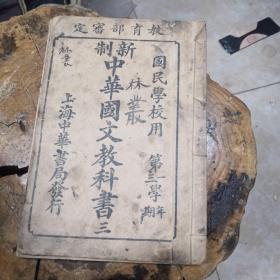 教育部審定
新制
國民學校用
中華國文教科書三
上海中華書局發行
第二學年
期